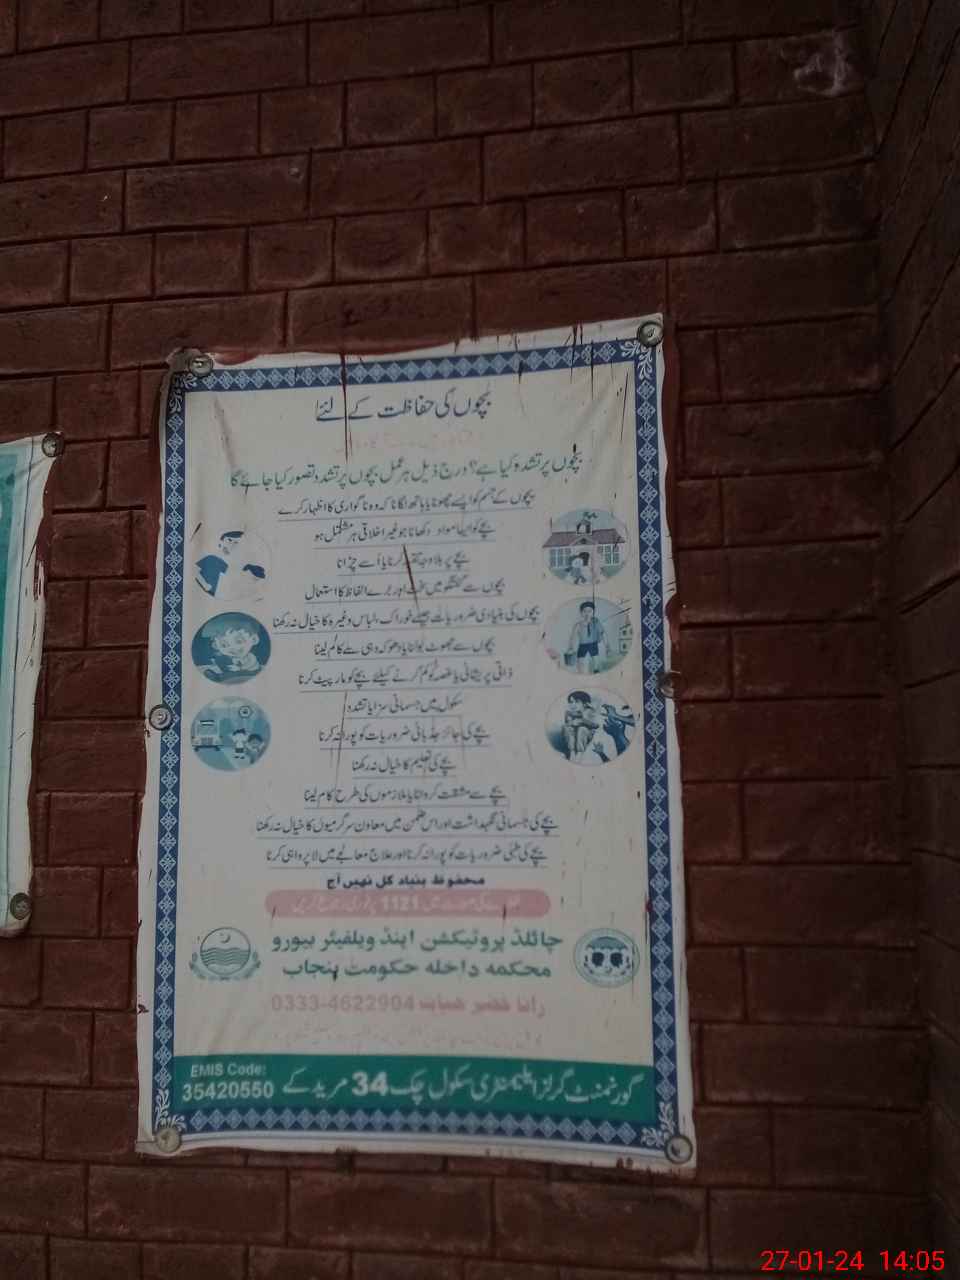 بچوں کی حفاظت کے لئے
بچوں پر تشدد کیا ہے؟ درج ذیل ہر عمل بچوں پر تشدد تصور کیا جائے گا
بچوں کے جسم کو ایسے چھونا یا ہاتھ لگانا کہ وہ ناگواری کا اظہار کرے
بچے کو ایسا مواد دکھانا جو غیر اخلاقی پر مشتمل ہو
بچے پر بلا وجہ تنقید کرنا یا اُسے چڑانا
بچوں سے گفتگو میں سخت اور برے الفاظ کا استعمال
بچوں کی بنیادی ضروریات جیسے خوراک، لباس وغیرہ کا خیال نہ رکھنا
بچوں سے جھوٹ بولنا یا دھوکہ دہی سے کام لینا
ذاتی پریشانی یا غصہ کو کم کرنے کیلئے بچے کو مار پیٹ کرنا
سکول میں جسمانی سزا یا تشدد
بچے کی جائز جذباتی ضروریات کو پورا نہ کرنا
بچے کی تعلیم کا خیال نہ رکھنا
بچے سے مشقت کروانا یا ملازموں کی طرح کام لینا
بچے کی جسمانی نگہداشت اور اس ضمن میں معاون سرگرمیوں کا خیال نہ رکھنا
بچے کی طبی ضروریات کو پورا نہ کرنا اور علاج معالجے میں لاپرواہی کرنا
محفوظ بنیاد کل نہیں آج
کی صورت میں 1121 پر فوری
چائلڈ پروٹیکشن اینڈ ویلفیئر بیورو
محکمہ داخلہ حکومت پنجاب
رانا خضر حیات 0333-4622904
گورنمنٹ گرلز ایلیمنٹری سکول چک 34 مریدکے
EMIS Code:
35420550
27-01-24 14:05